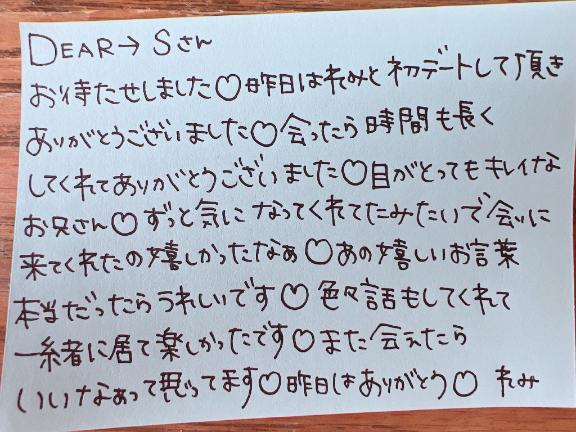 DEAR→ Sさん
お待たせしました♡昨日はれみと初デートして頂き
ありがとうございました♡会ったら時間も長く
してくれてありがとうございました♡目がとってもキレイな
お兄さん♡ずっと気になってくれてたみたいで会いに
来てくれたの嬉しかったなぁ♡あの嬉しいお言葉
本当だったらうれしいです♡色々話もしてくれて
一緒に居て楽しかったです♡また会えたら
いいなぁって思ってます♡昨日はありがとう♡ れみ